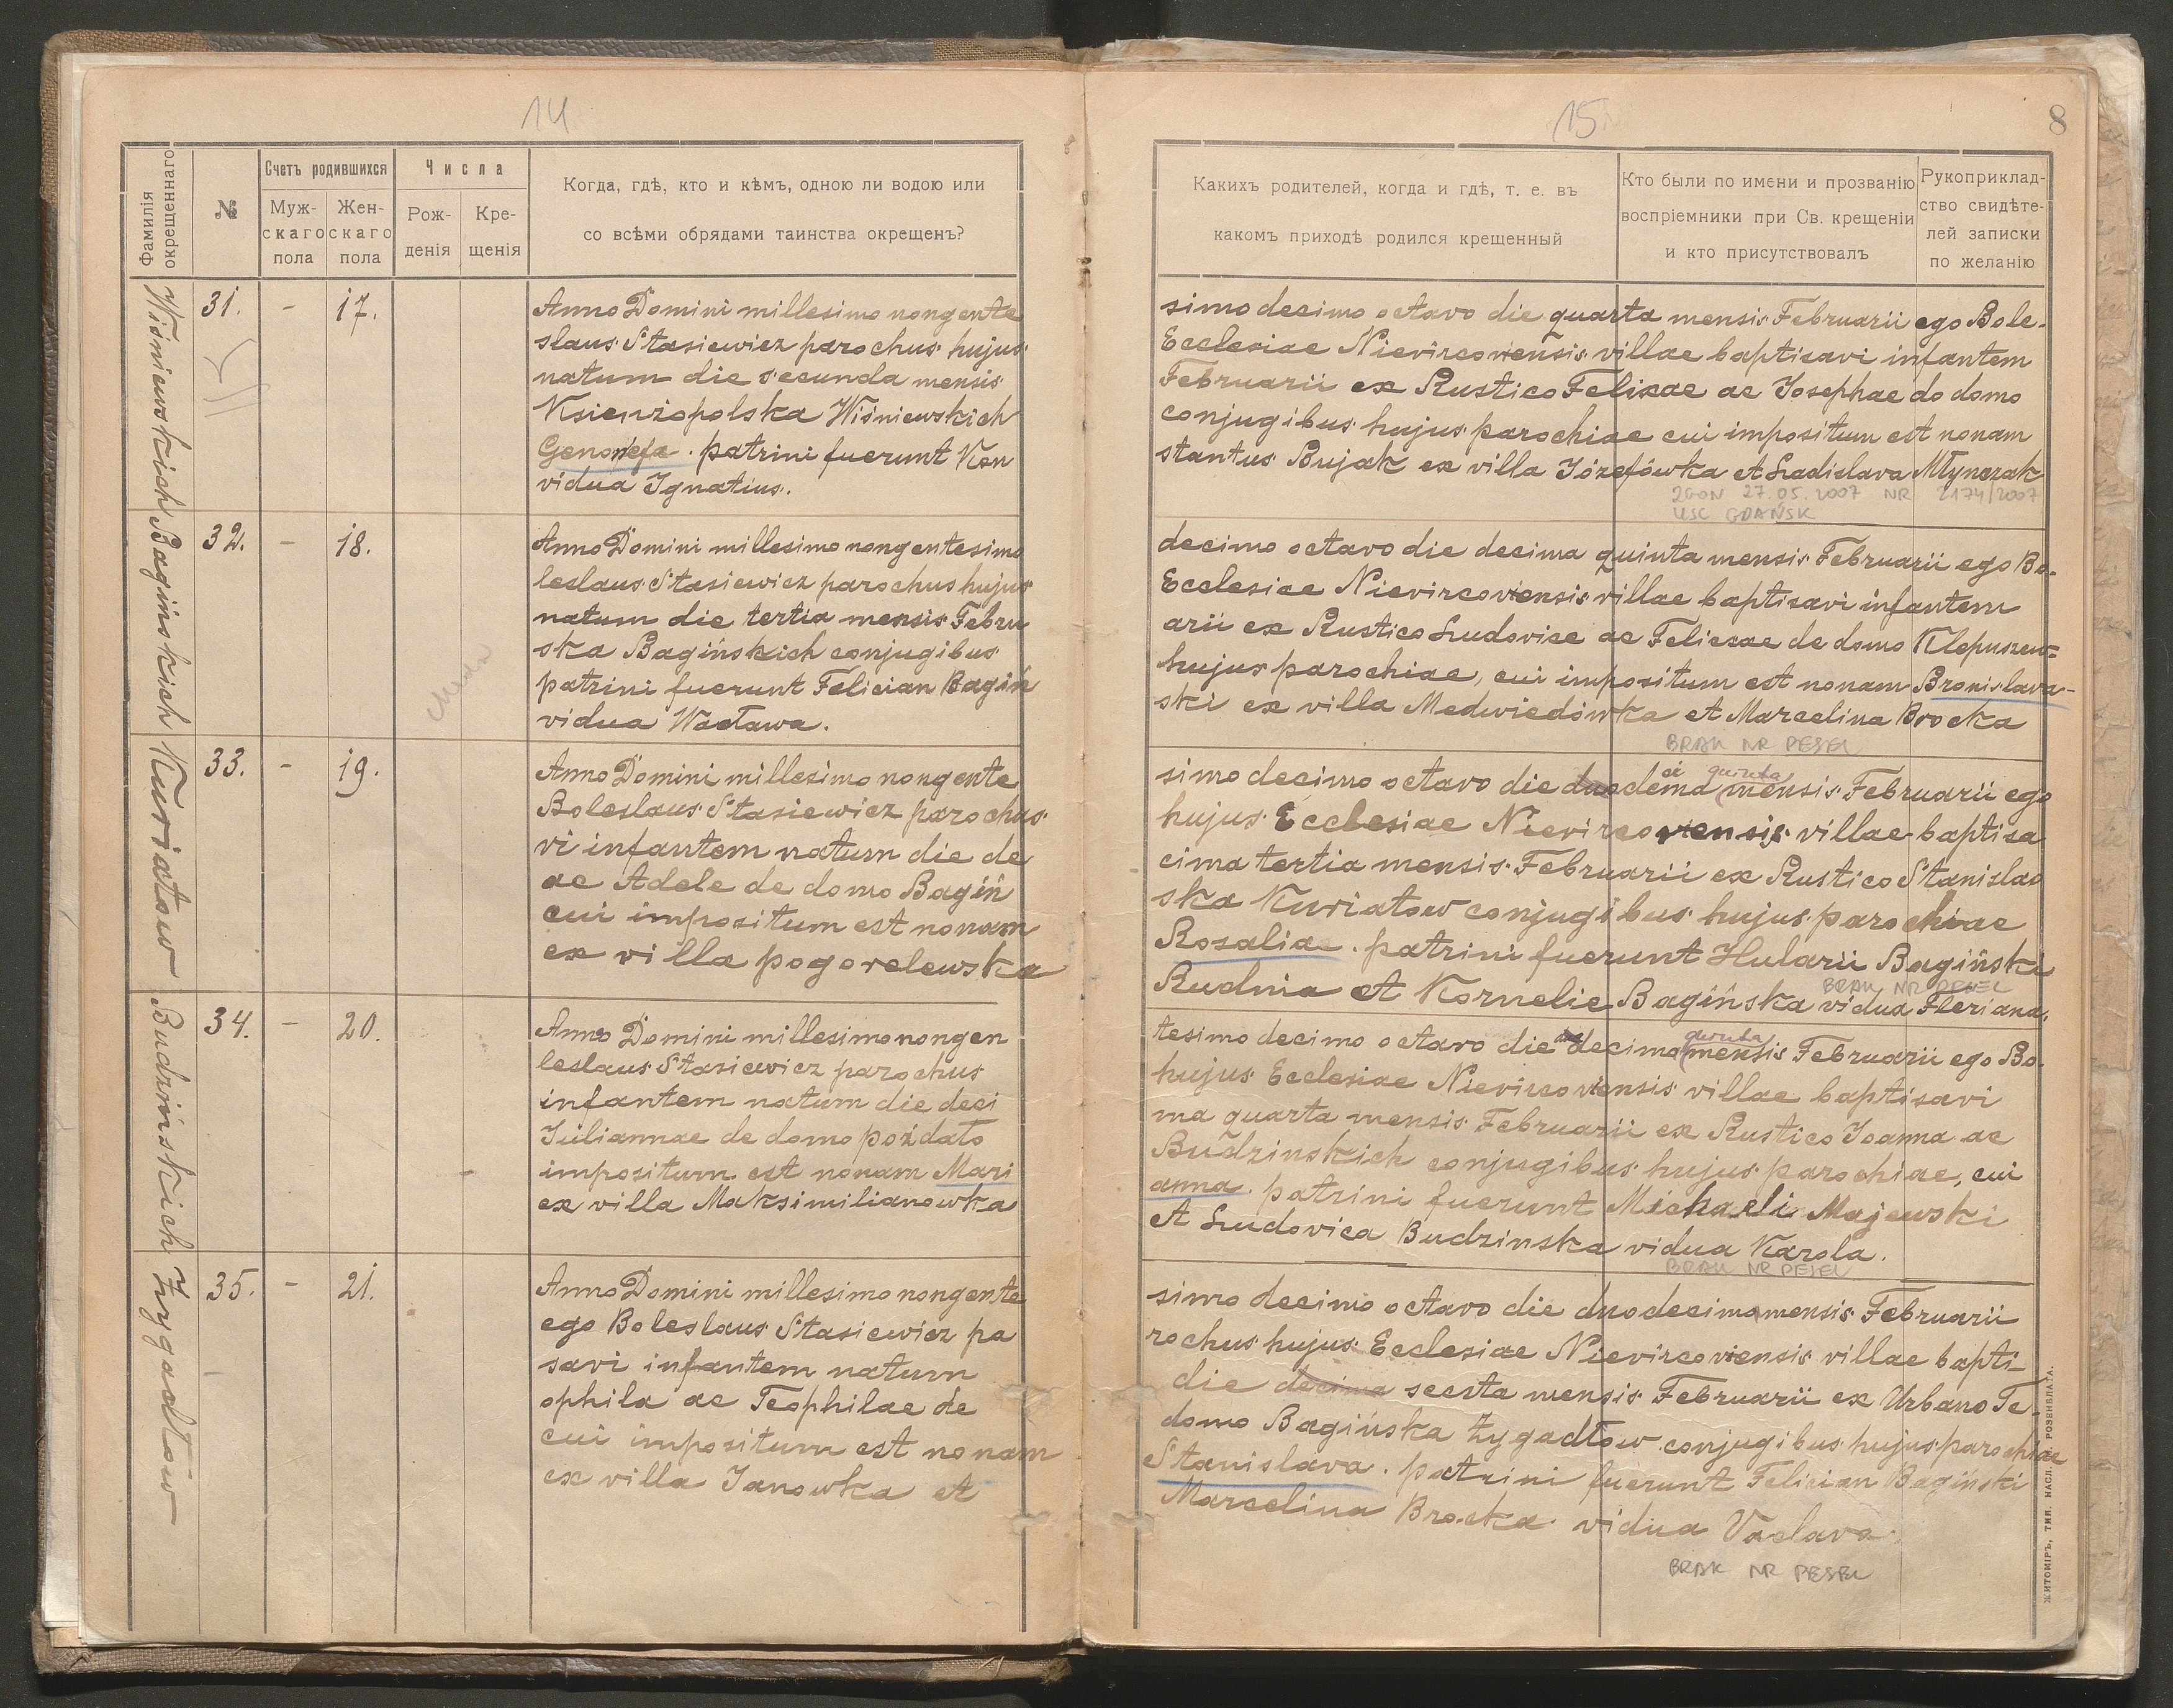 14
Фамилія окрещеннаго
№
Счетъ родившихся
Муж-
скаго
пола
Жен-
скаго
пола
Числа
Рож-
денія
Кре-
щенія
Когда, гдѣ, кто и кѣмъ, одною ли водою или
со всѣми обрядами таинства окрещенъ?
Wiśniewskich
31.
-
17.
Anno Domini millesimo nongente
slaus Stasiewicz parochus hujus
natum die secunda mensis
Ksienżopolska Wiśniewskich
Genowefa. patrini fuerunt Kon
vidua Ignatius.
Bagińskich
32.
-
18.
Anno Domini millesimo nongentesimo
leslaus Stasiewicz parochus hujus
natum die tertia mensis Febru
ska Bagińskich conjugibus
patrini fuerunt Felician Bagiń
vidua Wacława.
Kuriatow
33.
-
19.
Anno Domini millesimo nongente
Boleslaus Stasiewicz parochus
vi infantem natum die de
ac Adele de domo Bagiń
cui impositum est nonam
ex villa pogorelewska
Budzińskich
34.
-
20.
Anno Domini millesimo nongen
leslaus Stasiewicz parochus
infantem natum die deci
Juliannae de domo poźdato
impositum est nonam Mari
ex villa Maksimilianowka
Zygadłow
35.
-
21.
Anno Domini millesimo nongente
ego Boleslaus Stasiewicz pa
savi infantem natum
ophila ac Teophilae de
cui impositum est nonam
ex villa Janowka et
15
8
Какихъ родителей, когда и гдѣ, т. е. въ
какомъ приходѣ родился крещенный
Кто были по имени и прозванію
воспріемники при Св. крещеніи
и кто присутствовалъ
Рукоприклад-
ство свидѣте-
лей записки
по желанію
simo decimo octavo die quarta mensis Februarii ego Bole-
Ecclesiae Nieviroviensis villae baptisavi infantem
Februarii ex Rustico Felixae ac Josephae do domo
conjugibus hujus parochiae cui impositum est nonam
stantus Bujak ex villa Józefówka et Ladislava Młynczak
ZGON 27.05.2007 NR 2174/2007
USC GDAŃSK
decimo octavo die decima quinta mensis Februarii ego Bo-
Ecclesiae Nievircoviensis villae baptisavi infantem
arii ex Rustico Ludovice ac Felicxae de domo Klepuszew=
hujus parochiae, cui impositum est nonam Bronislava-
ski ex villa Medwiedówka et Marcelina Brocka
BRAK NR PESEL
simo decimo octavo die decima quinta mensis Februarii ego
hujus Ecclesiae Nievircoviensis villae baptisa
cima tertia mensis Februarii ex Rustico Stanislao
ska Kuriatow conjugibus hujus parochiae
Rosaliae. patrini fuerunt Hularii Bagiński
BRAK NR PESEL
Rudnia et Kornelie Bagińska vidua Fleriana.
tesimo decimo octavo die decima quinta mensis Februarii ego Bo-
hujus Ecclesiae Nievircoviensis villae baptisavi
ma quarta mensis Februarii ex Rustico Joanna ac
Budzinskich conjugibus hujus parochiae, cui
anna. patrini fuerunt Michaeli Majewski
et Ludovica Budzinska vidua Karola.
BRAK NR PESEL
simo decimo octavo die duodecima mensis Februarii
rochus hujus Ecclesiae Nievircoviensis villae bapti-
die decima secsta mensis Februarii ex Urbano Te-
domo Bagińska Zygadłow conjugibus hujus parochiae
Stanislava. patrini fuerunt Felician Bagiński
Marcelina Brocka vidua Vaclava.
BRAK NR PESEL
ЖИТОМІРЪ, ТИП. НАСЛ. М. РОЗЕНБЛАТА.